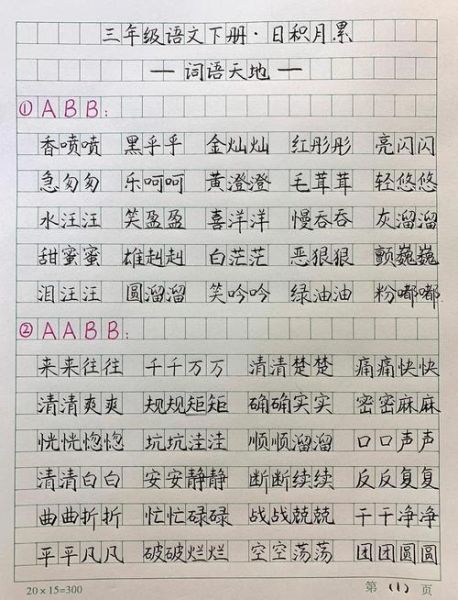 三年级语文下册·日积月累
—词语天地—
①ABB:
香喷喷 黑乎乎 金灿灿 红彤彤 亮闪闪
急匆匆 乐呵呵 黄澄澄 毛茸茸 轻悠悠
水汪汪 笑盈盈 喜洋洋 慢吞吞 灰溜溜
甜蜜蜜 雄赳赳 白茫茫 恶狠狠 颤巍巍
泪汪汪 圆溜溜 笑吟吟 绿油油 粉嘟嘟
②AABB:
来来往往 千千万万 清清楚楚 痛痛快快
清清爽爽 规规矩矩 确确实实 密密麻麻
恍恍惚惚 坑坑洼洼 顺顺溜溜 口口声声
清清白白 安安静静 断断续续 反反复复
曲曲折折 忙忙碌碌 战战兢兢 干干净净
平平凡凡 破破烂烂 空空荡荡 团团圆圆
20×15=300 第(1)页